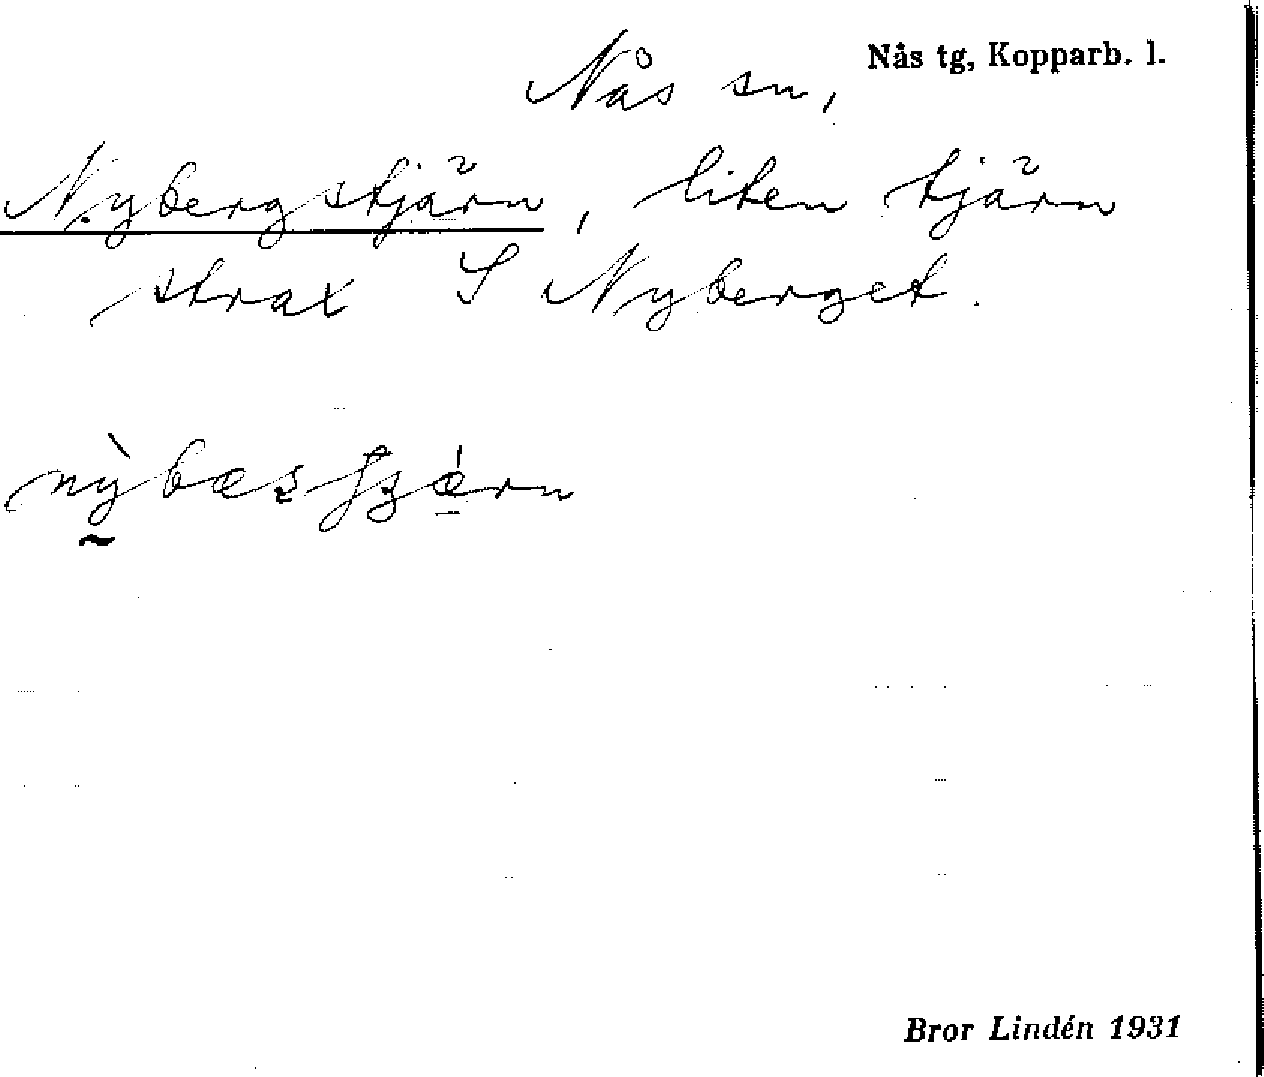 Nås tg, Kopparb. l.
Nås sn,
Nybergstjärn, liten tjärn
strax S Nyberget.
Bror Lindén 1931